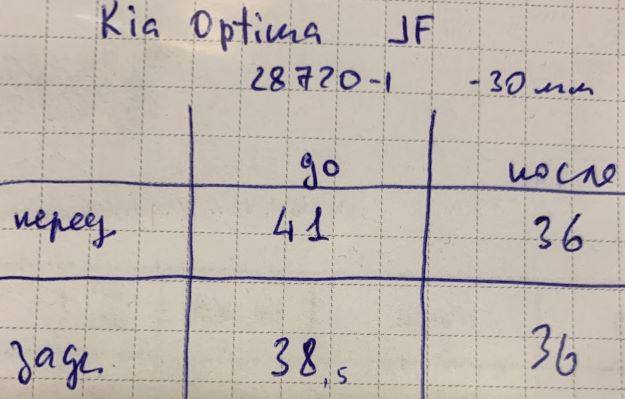 Kia Optima JF
28720-1 -30мм
до после
перед 41 36
зад 38,5 36